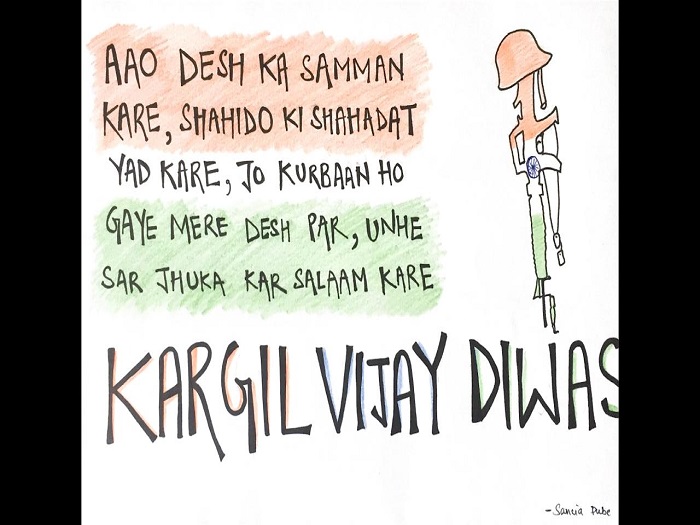 AAO DESH KA SAMMAN
KARE, SHAHIDO KI SHAHADAT
YAD KARE, JO KURBAAN HO
GAYE MERE DESH PAR, UNHE
SAR JHUKA KAR SALAAM KARE
KARGIL VIJAY DIWAS